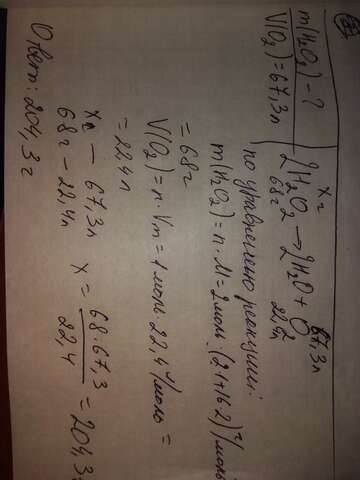 m(H₂O₂) - ?
V(O₂) = 67,3л
xг 67,3л
2H₂O₂ → 2H₂O + O₂
68г 22,4л
по уравнению реакции:
m(H₂O₂) = n · M = 2моль · (2·1+16·2)г/моль
= 68г
V(O₂) = n · Vm = 1моль · 22,4 л/моль =
= 22,4л
xг — 67,3л
68г — 22,4л x = 68·67,3 / 22,4 = 204,3г
Ответ: 204,3г